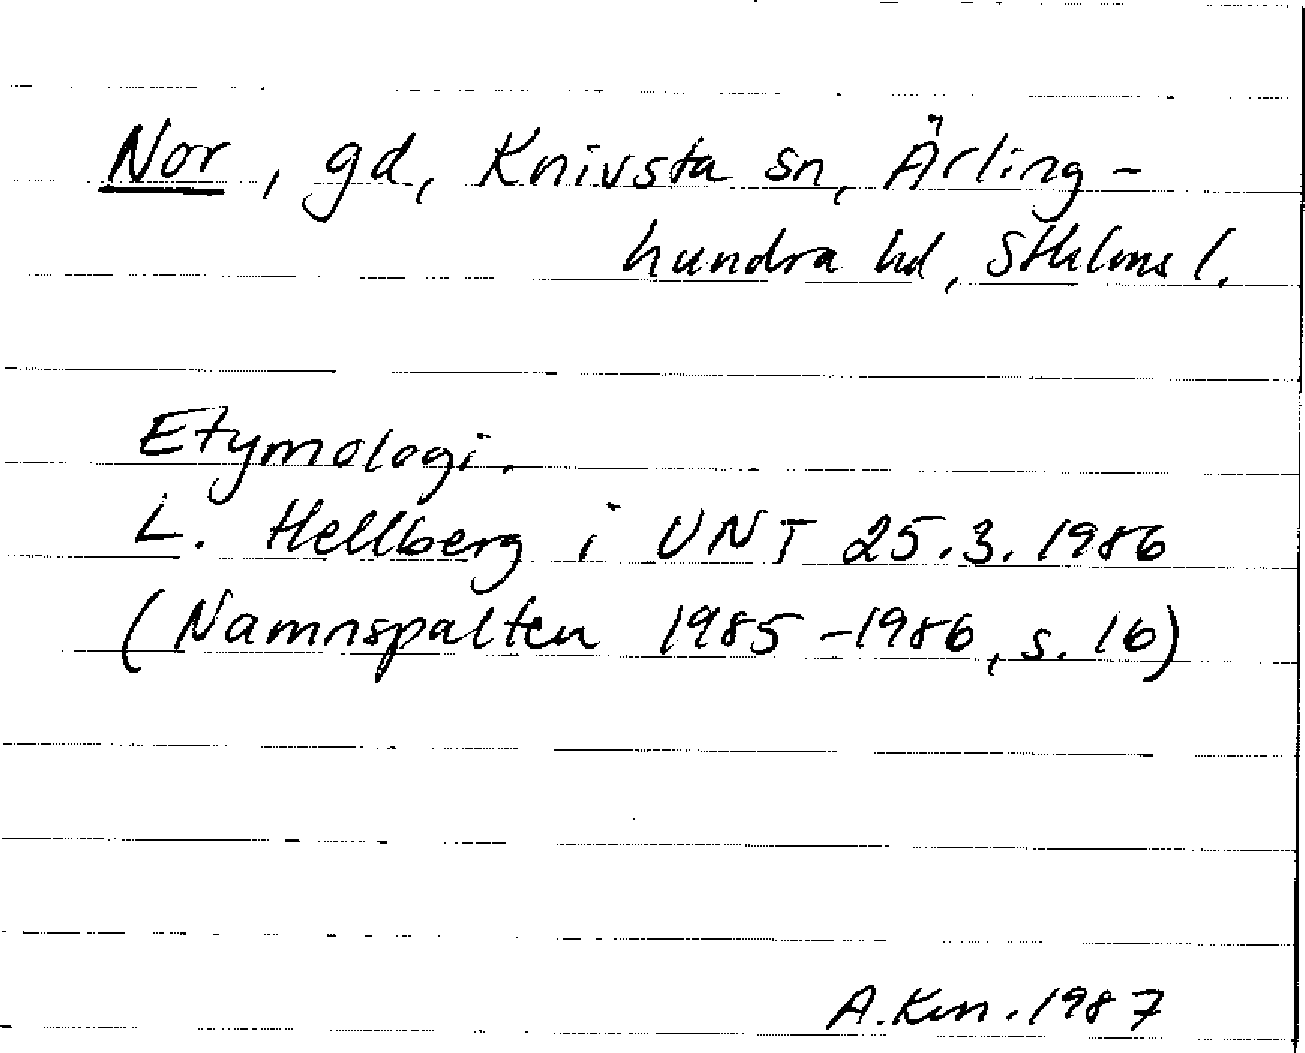 Nor, gd, Knivsta sn, Ärling-
hundra hd, Sthlms l.
Etymologi.
L. Hellberg i UNT 25.3.1986
(Namnspalten 1985-1986, s. 16)
A.Km.1987